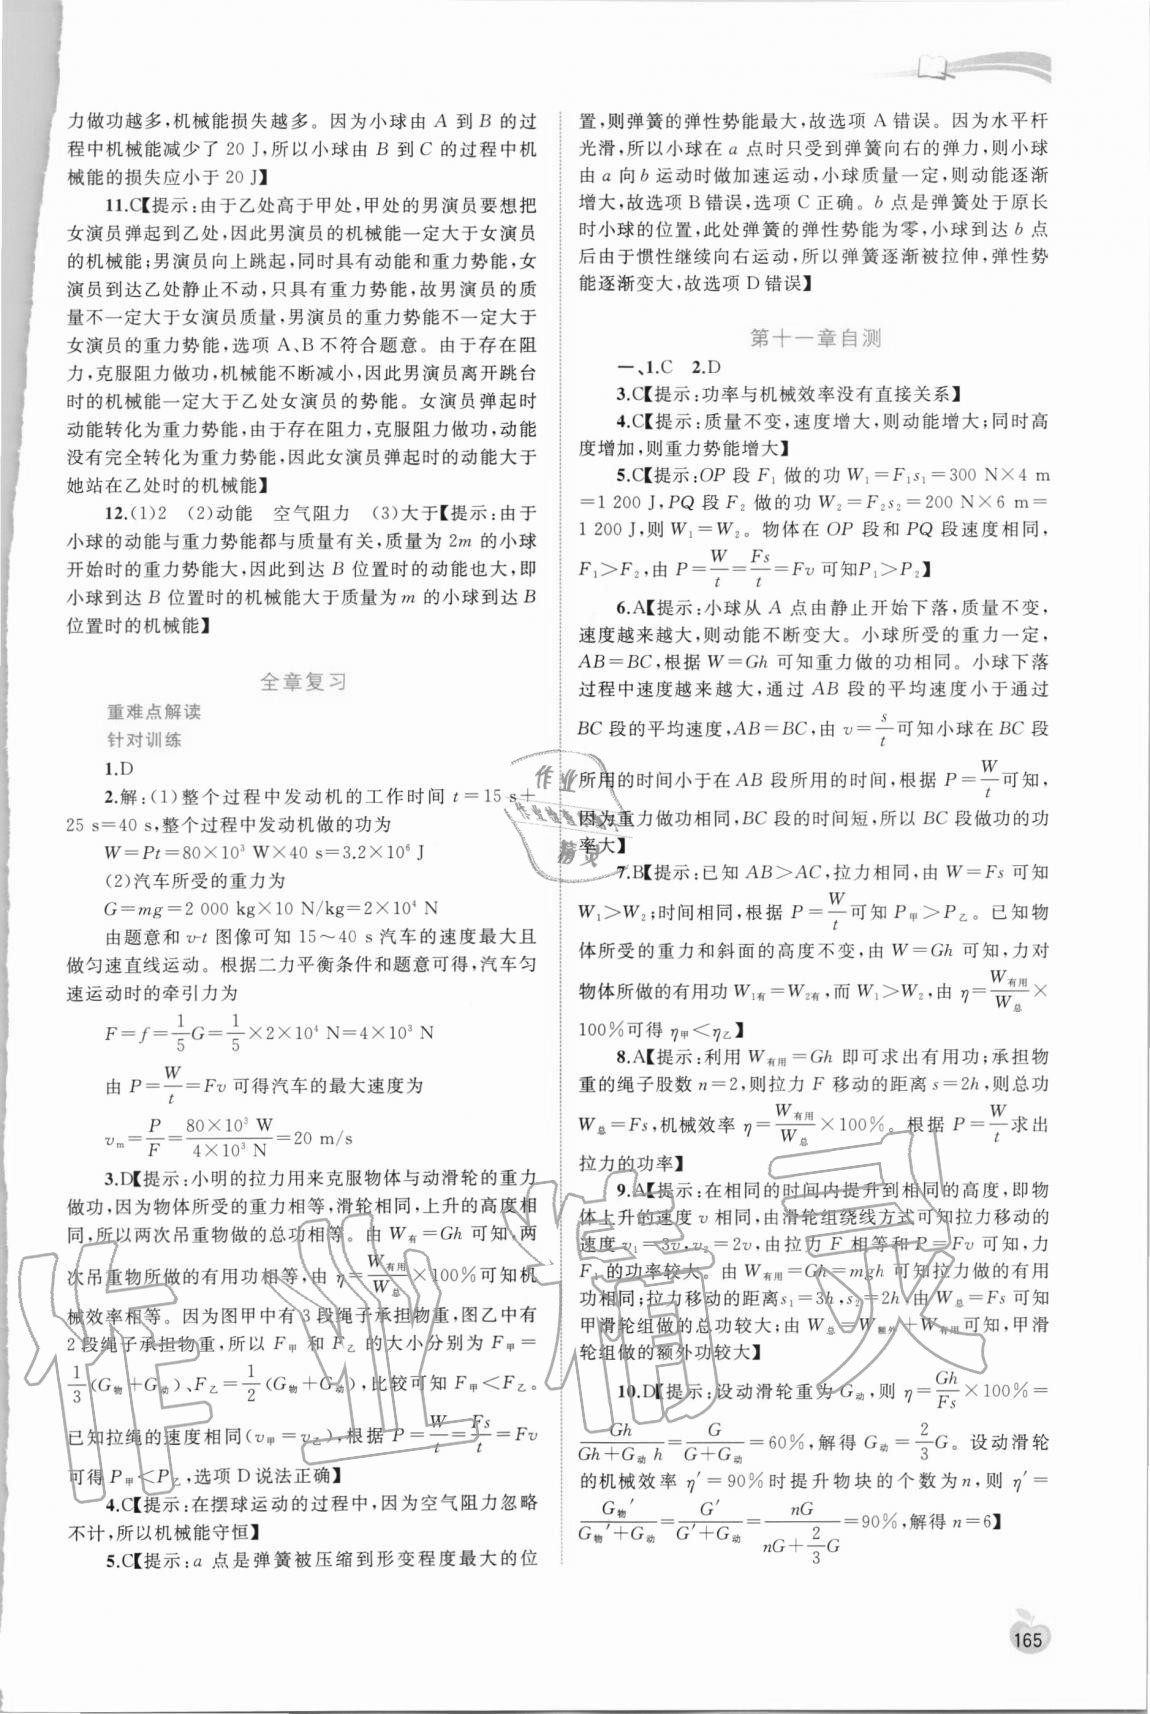 力做功越多,机械能损失越多。因为小球由 A 到 B 的过
程中机械能减少了 20 J,所以小球由 B 到 C 的过程中机
械能的损失应小于 20 J】
11.C【提示:由于乙处高于甲处,甲处的男演员要想把
女演员弹起到乙处,因此男演员的机械能一定大于女演员
的机械能;男演员向上跳起,同时具有动能和重力势能,女
演员到达乙处静止不动,只具有重力势能,故男演员的质
量不一定大于女演员质量,男演员的重力势能不一定大于
女演员的重力势能,选项 A、B 不符合题意。由于存在阻
力,克服阻力做功,机械能不断减小,因此男演员离开跳台
时的机械能大于乙处女演员的势能。女演员弹起时
动能转化为重力势能,由于存在阻力,克服阻力做功,动能
没有完全转化为重力势能,因此女演员弹起时的动能大于
她站在乙处时的机械能】
12.(1)2 (2)动能 空气阻力 (3)大于【提示:由于
小球的动能与重力势能都与质量有关,质量为 2m 的小球
开始时的重力势能大,因此到达 B 位置时的动能也大,即
小球到达 B 位置时的机械能大于质量为 m 的小球到达 B
位置时的机械能】
全章复习
重难点解读
针对训练
1.D
2.解:(1)整个过程中发动机的工作时间 t=15 s+
25 s=40 s,整个过程中发动机做的功为
W=Pt=80×10³ W×40 s=3.2×10⁶ J
(2)汽车所受的重力为
G=mg=2 000 kg×10 N/kg=2×10⁴ N
由题意和 v-t 图像可知 15～40 s 汽车的速度最大且
做匀速直线运动。根据二力平衡条件和题意可得,汽车匀
速运动时的牵引力为
F=f=1/5G=1/5×2×10⁴ N=4×10³ N
由 P=W/t=Fv 可得汽车的最大速度为
vₘ=P/F=80×10³ W/4×10³ N=20 m/s
3.D【提示:小明的拉力用来克服物体与动滑轮的重力
做功,因为物体所受的重力相等,滑轮相同,上升的高度相
同,所以两次吊重物做的总功相等。由 W有=Gh 可知,两
次吊重物所做的有用功相等,由 η=W有用/W总×100%可知机
械效率相等。因为图甲中有 3 段绳子承担物重,图乙中有
2 段绳子承担物重,所以 F甲 和 F乙 的大小分别为 F甲=
1/3(G物+G动)、F乙=1/2(G物+G动),比较可知 F甲<F乙。
已知拉绳的速度相同(v甲=v乙),根据 P=W/t=Fs/t=Fv
可得 P甲<P乙,选项 D 说法正确】
4.C【提示:在摆球运动的过程中,因为空气阻力忽略
不计,所以机械能守恒】
5.C【提示:a 点是弹簧被压缩到形变程度最大的位
置,则弹簧的弹性势能最大,故选项 A 错误。因为水平杆
光滑,所以小球在 a 点时只受到弹簧向右的弹力,则小球
由 a 向 b 运动时做加速运动,小球质量一定,则动能逐渐
增大,故选项 B 错误,选项 C 正确。b 点是弹簧处于原长
时小球的位置,此处弹簧的弹性势能为零,小球到达 b 点
后由于惯性继续向右运动,所以弹簧逐渐被拉伸,弹性势
能逐渐变大,故选项 D 错误】
第十一章自测
一、1.C 2.D
3.C【提示:功率与机械效率没有直接关系】
4.C【提示:质量不变,速度增大,则动能增大;同时高
度增加,则重力势能增大】
5.C【提示:OP 段 F₁ 做的功 W₁=F₁s₁=300 N×4 m
=1 200 J,PQ 段 F₂ 做的功 W₂=F₂s₂=200 N×6 m=
1 200 J,则 W₁=W₂。物体在 OP 段和 PQ 段速度相同,
F₁>F₂,由 P=W/t=Fs/t=Fv 可知P₁>P₂】
6.A【提示:小球从 A 点由静止开始下落,质量不变,
速度越来越大,则动能不断变大。小球所受的重力一定,
AB=BC,根据 W=Gh 可知重力做的功相同。小球下落
过程中速度越来越大,通过 AB 段的平均速度小于通过
BC 段的平均速度,AB=BC,由 v=s/t可知小球在 BC 段
所用的时间小于在 AB 段所用的时间,根据 P=W/t可知,
因为重力做功相同,BC 段的时间短,所以 BC 段做功的功
率大】
7.B【提示:已知 AB>AC,拉力相同,由 W=Fs 可知
W₁>W₂;时间相同,根据 P=W/t可知 P甲>P乙。已知物
体所受的重力和斜面的高度不变,由 W=Gh 可知,力对
物体所做的有用功 W1有=W2有,而 W₁>W₂,由 η=W有用/W总×
100%可得 η甲<η乙】
8.A【提示:利用 W有用=Gh 即可求出有用功;承担物
重的绳子股数 n=2,则拉力 F 移动的距离 s=2h,则总功
W总=Fs,机械效率 η=W有用/W总×100%。根据 P=W/t求出
拉力的功率】
9.A【提示:在相同的时间内提升到相同的高度,即物
体上升的速度 v 相同,由滑轮组绕线方式可知拉力移动的
速度 v₁=3v,v₂=2v,由拉力 F 相等和 P=Fv 可知,力
F₁ 的功率较大。由 W有用=Gh=mgh 可知拉力做的有用
功相同;拉力移动的距离s₁=3h,s₂=2h,由 W总=Fs 可知
甲滑轮组做的总功较大;由 W总=W额外+W有用可知,甲滑
轮组做的额外功较大】
10.D【提示:设动滑轮重为 G动,则 η=Gh/Fs×100%=
Gh/(Gh+G动 h)=G/(G+G动)=60%,解得 G动=2/3G。设动滑轮
的机械效率 η′=90%时提升物块的个数为 n,则 η′=
G物′/(G物′+G动)=G′/(G′+G动)=nG/(nG+2/3G)=90%,解得 n=6】
165
作业
精灵
作业精灵